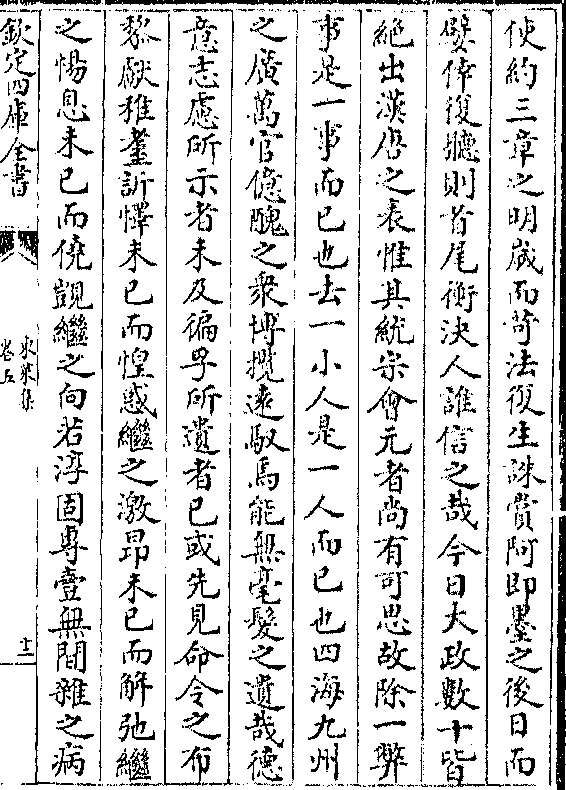 使約三章之明歳而苛法復生誅賞阿即墨之後日而
嬖倖復聽則首尾衡決人誰信之哉今日大政數十皆
絶出漢唐之表惟其統宗會元者尚有可思故除一弊
事是一事而已也去一小人是一人而已也四海九州
之廣萬官億醜之衆博攬逺馭焉能無毫髮之遺哉德
意志慮所示者未及徧孚所遺者已或先見命令之布
黎獻稚耋訢懌未已而惶惑繼之激昂未已而解弛繼
之惕息未已而僥覬繼之向若淳固專壹無間雜之病
欽定四庫全書
東萊集
卷五
十二